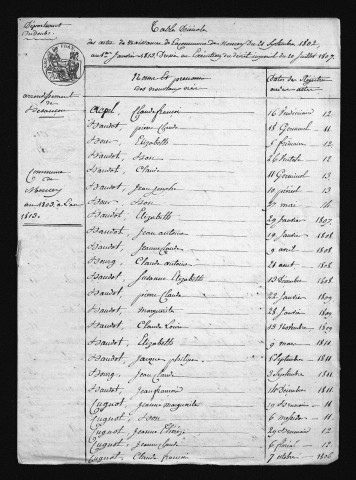 Département
du doubs.
Table décennale
des actes de Naissance de la Commune de Moncey du 21 Septembre 1802,
au 1er Janvier 1813. Dressée en Exécution du décret impérial du 20 Juillet 1807.
arrondissement
de
Besançon
Commune
de
Moncey
an 1803 à l'an
1813.
Noms et prénoms
des nouveaux nés
Dates des Registres
Claude françois 16 12
Baudot, pierre Claude 18 Germinal 11
Elizabeth 5 frimaire 12
Baudot, 26 12
Baudot, Claude 11 Germinal 13
Baudot, Jean Joseph 10 13
mai
Baudot, Elizabeth 29 Janvier 1807
Baudot, Jean antoine 19 Janvier 1808
Baudot, Jeanne Claude 9 avril 1808
Bourg, Claude antoine 21 aout 1808
Baudot, Susanne Elizabeth 13 Decembre 1808
Baudot, pierre Claude 22 Janvier 1809
Baudot, marguerite 28 Janvier 1809
Baudot, Claude Louis 13 Novembre 1809
Baudot, Elizabeth 9 mars 1811
Baudot, Jacques philippe Septembre 1811
Bourg, Jean Claude 3 Septembre 1811
Baudot, Jean françois Decembre 1811
Cuguot, Jeanne marguerite 11
Cuguot, 6 messidor 11
Cuguot, Jeanne Thérèse 12
Cuguot, Jeanne Claude 6 floréal 12
Cuguot, Claude françois 7 octobre 1806